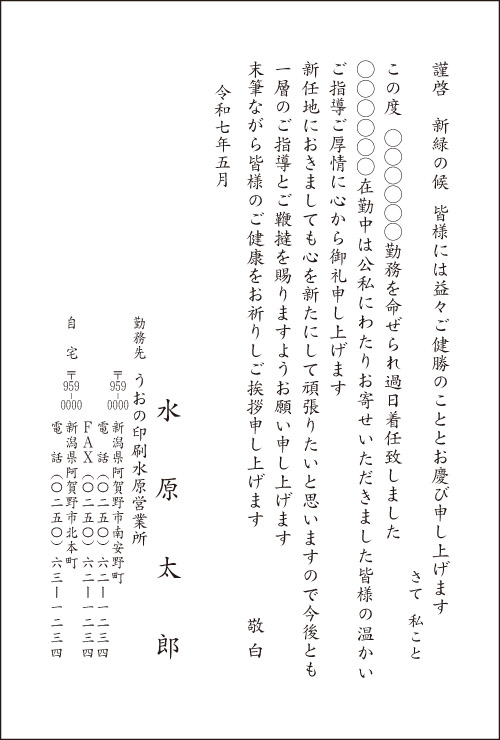 謹啓　新緑の候　皆様には益々ご健勝のこととお慶び申し上げます
さて　私こと
この度　〇〇〇〇〇〇勤務を命ぜられ過日着任致しました
〇〇〇〇〇〇在勤中は公私にわたりお寄せいただきました皆様の温かい
ご指導ご厚情に心から御礼申し上げます
新任地におきましても心を新たにして頑張りたいと思いますので今後とも
一層のご指導とご鞭撻を賜りますようお願い申し上げます
末筆ながら皆様のご健康をお祈りしご挨拶申し上げます　敬白
令和七年五月
水原太郎
勤務先　うおの印刷水原営業所
〒959-0000　新潟県阿賀野市南安野町
電話（〇二五〇）六二―一二三四
ＦＡＸ（〇二五〇）六二―一二三四
自宅　〒959-0000　新潟県阿賀野市北本町
電話（〇二五〇）六三―一二三四